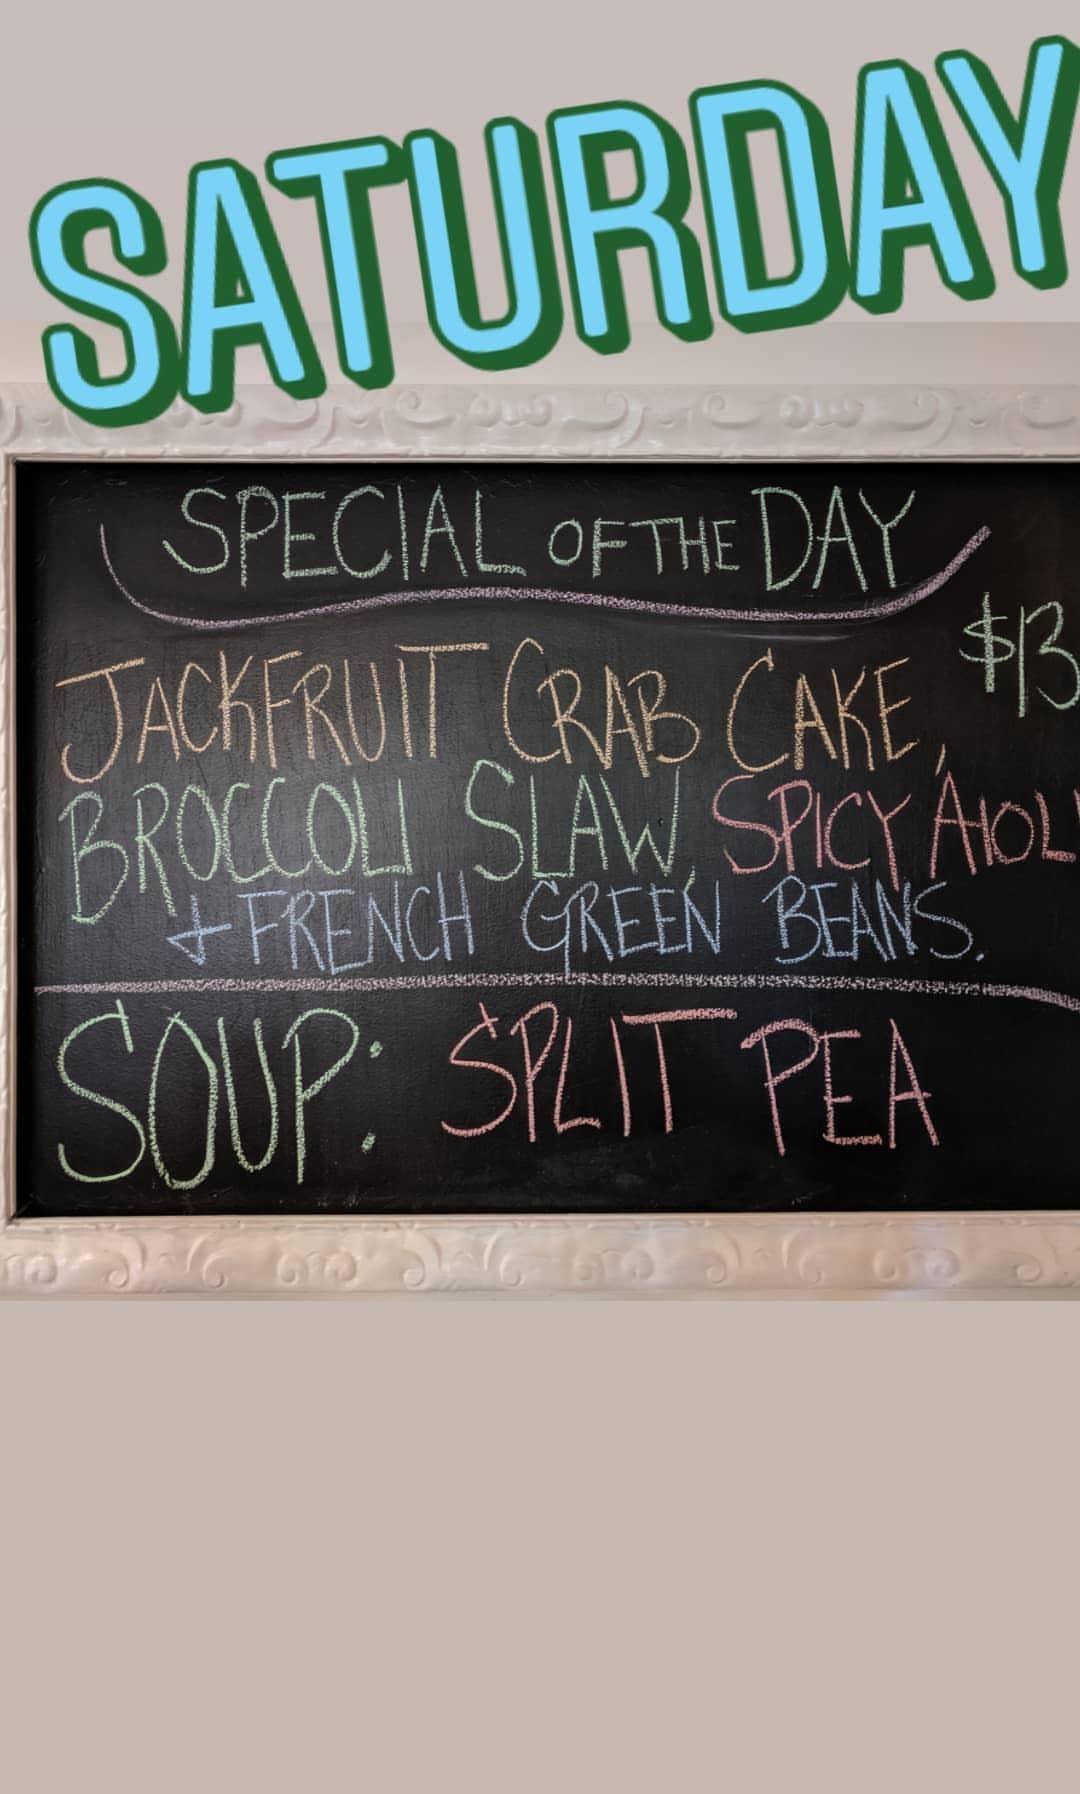 SATURDAY
SPECIAL OF THE DAY
$13
JACKFRUIT CRAB CAKE,
BROCCOLI SLAW, SPICY AIOLI
+ FRENCH GREEN BEANS.
SOUP: SPLIT PEA